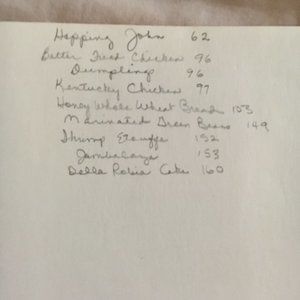 Hopping John 62
Batter Fried Chicken 96
Dumplings 96
Kentucky Chicken 97
Honey Whole Wheat Bread 103
Marinated Green Beans 149
Shrimp Etouffe 152
Jambalaya 153
Della Robia Cake 160